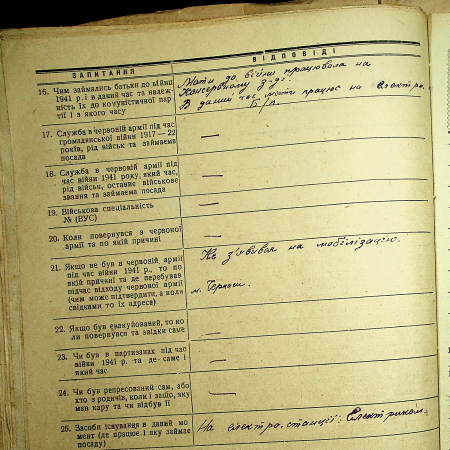 ЗАПИТАННЯ
ВІДПОВІДІ
16. Чим займались батьки до війни
1941 р. і в даний час та належ-
ність їх до комуністичної пар-
тії і з якого часу
Мати до війни працювала на
Консервному З-ді.
В даний час мати працює на електро.
Б/п.
17. Служба в червоній армії під час
громадянської війни 1917—22
років, рід військ та займаєма
посада
—
18. Служба в червоній армії під
час війни 1941 року, який час,
рід військ, останнє військове
звання та займаєма посада
—
19. Військова спеціальність
№ (ВУС)
—
20. Коли повернувся з червоної
армії та по якій причині
—
21. Якщо не був в червоній армії
під час війни 1941 р., то по
якій причині та де перебував
підчас відходу червоної армії
(чим може підтвердити, а коли
свідками то їх адреса)
Не з'явився на мобілізацію.
м.
22. Якщо був евакуйований, то ко-
ли повернувся та звідки саме
—
23. Чи був в партизанах під час
війни 1941 р. та де саме і
який час
—
24. Чи був репресований сам, або
хто з родичів, коли і защо, яку
мав кару та чи відбув її
—
25. Засоби існування в даний мо-
мент (де працює і яку займає
посаду)
На електро.станції: Електриком.